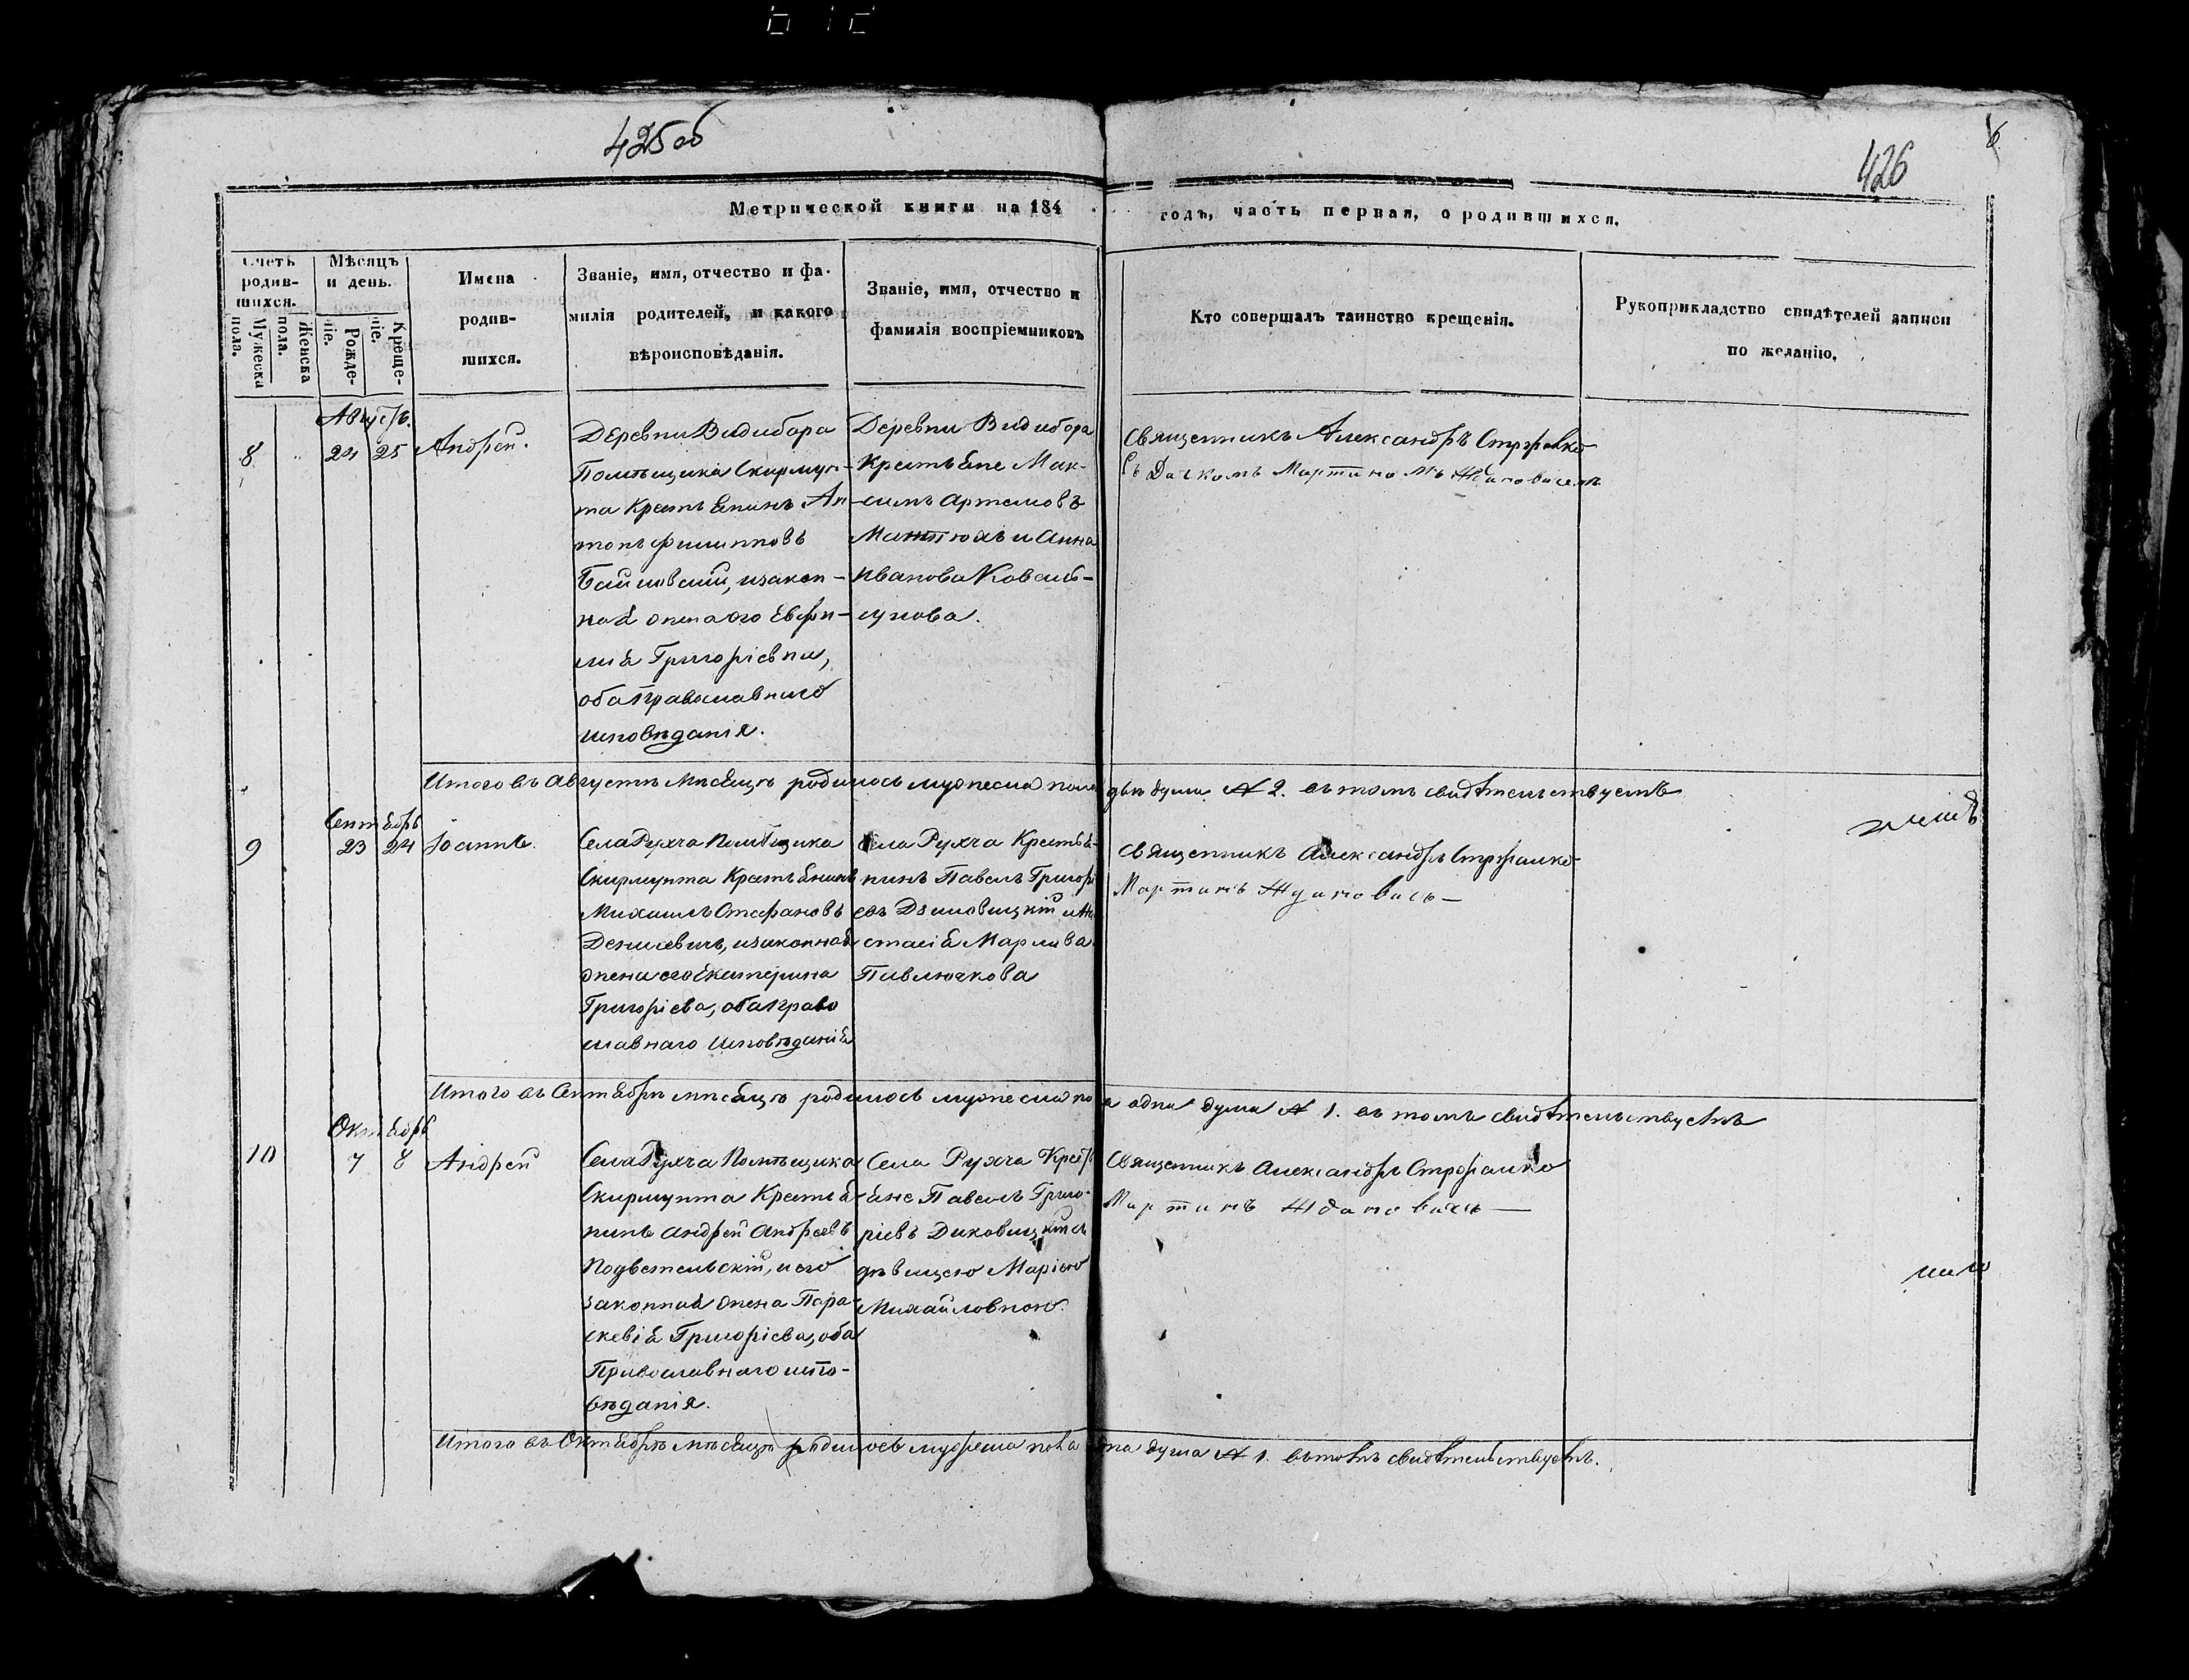 425 об
426
6
Метрической книги на 184
годъ, часть первая, о родившихся.
Счетъ родив-
шихся.
Мужеска пола.
Женска пола.
Мѣсяцъ
и день.
Рожде-
ніе.
Креще-
ніе.
Имена
родив-
шихся.
Званіе, имя, отчество и фа-
милія родителей, и какого
вѣроисповѣданія.
Званіе, имя, отчество и
фамилія воспріемниковъ
Кто совершалъ таинство крещенія.
Рукоприкладство свидѣтелей записи
по желанію.
Августъ.
8 24 25 Андрей.
Деревни Видибора
Помѣщика Скирмун-
та Крестьянинъ Ан-
тонъ Филипповъ
и закон-
ная жена его Евфи-
мія Григоріевна,
оба Православнаго
исповѣданія.
Деревни Видибора
Крестьяне Мак-
симъ Артемовъ
и Анна
Иванова Коваль-
чукова.
Священникъ Александръ
съ Дьячкомъ Мартиномъ Ждановичемъ
Итого въ Августѣ мѣсяцѣ родилось мужеска пола двѣ души № 2. въ томъ свидѣтельствуемъ
Сентябрь
9 23 24 Іоаннъ.
Села Рухча Помѣщика
Скирмунта Крестьянинъ
Михаилъ Стефановъ
Денисевичъ, и законная
жена его Екатерина
Григоріева, оба Право
славнаго исповѣданія
Села Рухча Крестья-
нинъ Павелъ Григорі
евъ и На
стасія
Павлючкова
Священникъ Александръ
Мартинъ Ждановичъ
Итого въ Сентябрѣ мѣсяцѣ родилось мужеска пола одна душа № 1. въ томъ свидѣтельствуемъ
Октябрь
10 7 8 Андрей
Села Рухча Помѣщика
Скирмунта Крестья
нинъ Андрей Андреевъ
Подветельскій, и его
законная жена Пара-
скевія Григоріева, оба
Православнаго испо-
вѣданія.
Села Рухча Кресть
яне Павелъ Григо-
ріевъ Диковицкій съ
дѣвицею Маріею
Михайловною.
Священникъ Александръ
Мартинъ Ждановичъ
Итого въ Октябрѣ мѣсяцѣ родилось мужеска пола одна душа № 1. въ томъ свидѣтельствуемъ.